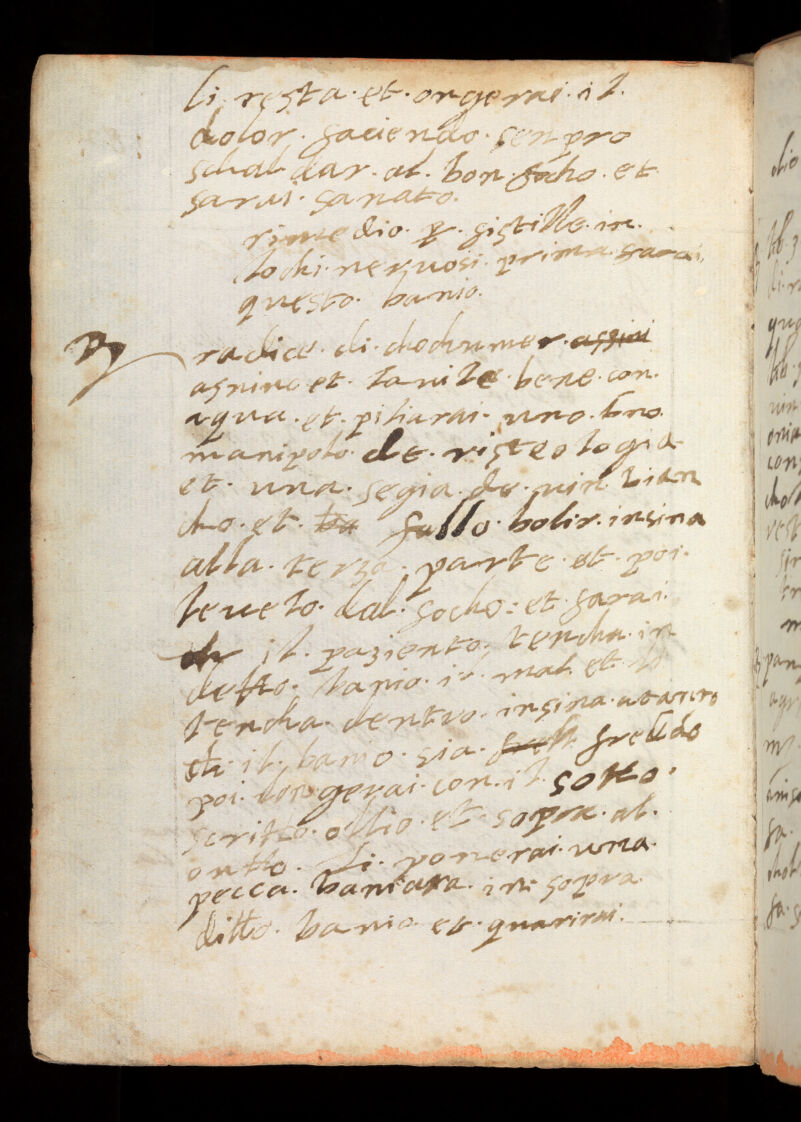 li resta · et · ongerai · il ·
dolor · faciendo · senpro
schal dar · al · bon · focho · et
sarai · sanato ·
rimedio · p · fistille · in ·
lochi · neruosi · prima · farai ·
questo · banio ·
radice · di · chochumer · assini
asnino et · lavile · bene · con ·
aqua · et · piliarai · uno · bno
manipolo · de · risteologia
et · una · segia · de · vin · bian
cho · et · fallo · bolir · insina
alla · terza · parte · et · poi ·
levelo · dal · focho : et · farai ·
ch il · paziento · tencha · in
detto · banio · il · mal · et · lo
tencha · dentro · insina · a tanto
ch · il · banio · sia · freddo
poi · longerai · con · il · sotto ·
scritto · ollio · et · sopra · al ·
ontto · li · ponerai · una ·
pecca · baniata · in · sopra
ditto · banio et · quarirai ·